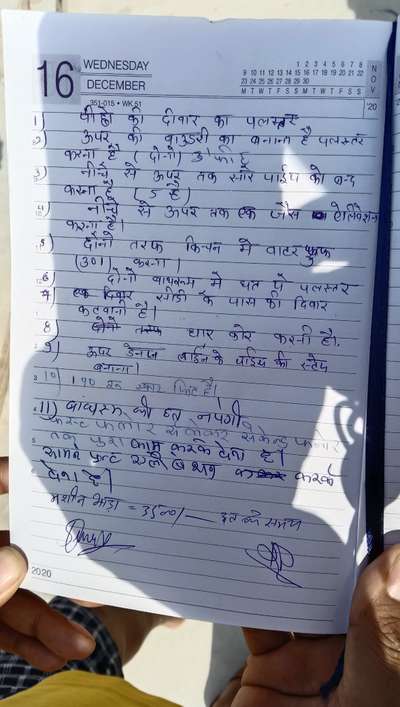 16 WEDNESDAY
DECEMBER
351-015 • WK 51
NOV '20
1 2 3 4 5 6 7 8
9 10 11 12 13 14 15 16 17 18 19 20 21 22
23 24 25 26 27 28 29 30
M T W T F S S M T W T F S S
1) की दीवार का पलस्तर
2) ऊपर की का बनाना है पलस्तर
करना है (दोनों) 3 फीट
3) नीचे से ऊपर तक सारे पाईप को बन्द
करना है (5 है)
4) नीचे से ऊपर तक एक जैसा ऐलिवेशन
करना है।
5) दोनों तरफ किचन में वाटर प्रुफ
(301) करना।
6) दोनों बाथरूम में छत पे पलस्तर
7) एक दिवार सीडी के पास की दिवार
करवानी है।
8 दोनो तरफ धार कोर करनी है।
9) ऊपर के पाईप की स्टेप
बनाना।
10) 190 रु स्क्वायर फिट है।
11) की छत नपेगी
से लेकर सेकेन्ड फ्लोर
तक पुरा काम करके देना है।
सामने फ्रन्ट करके
देना है।
मशीन भाड़ा = 3500/- के समय
2020